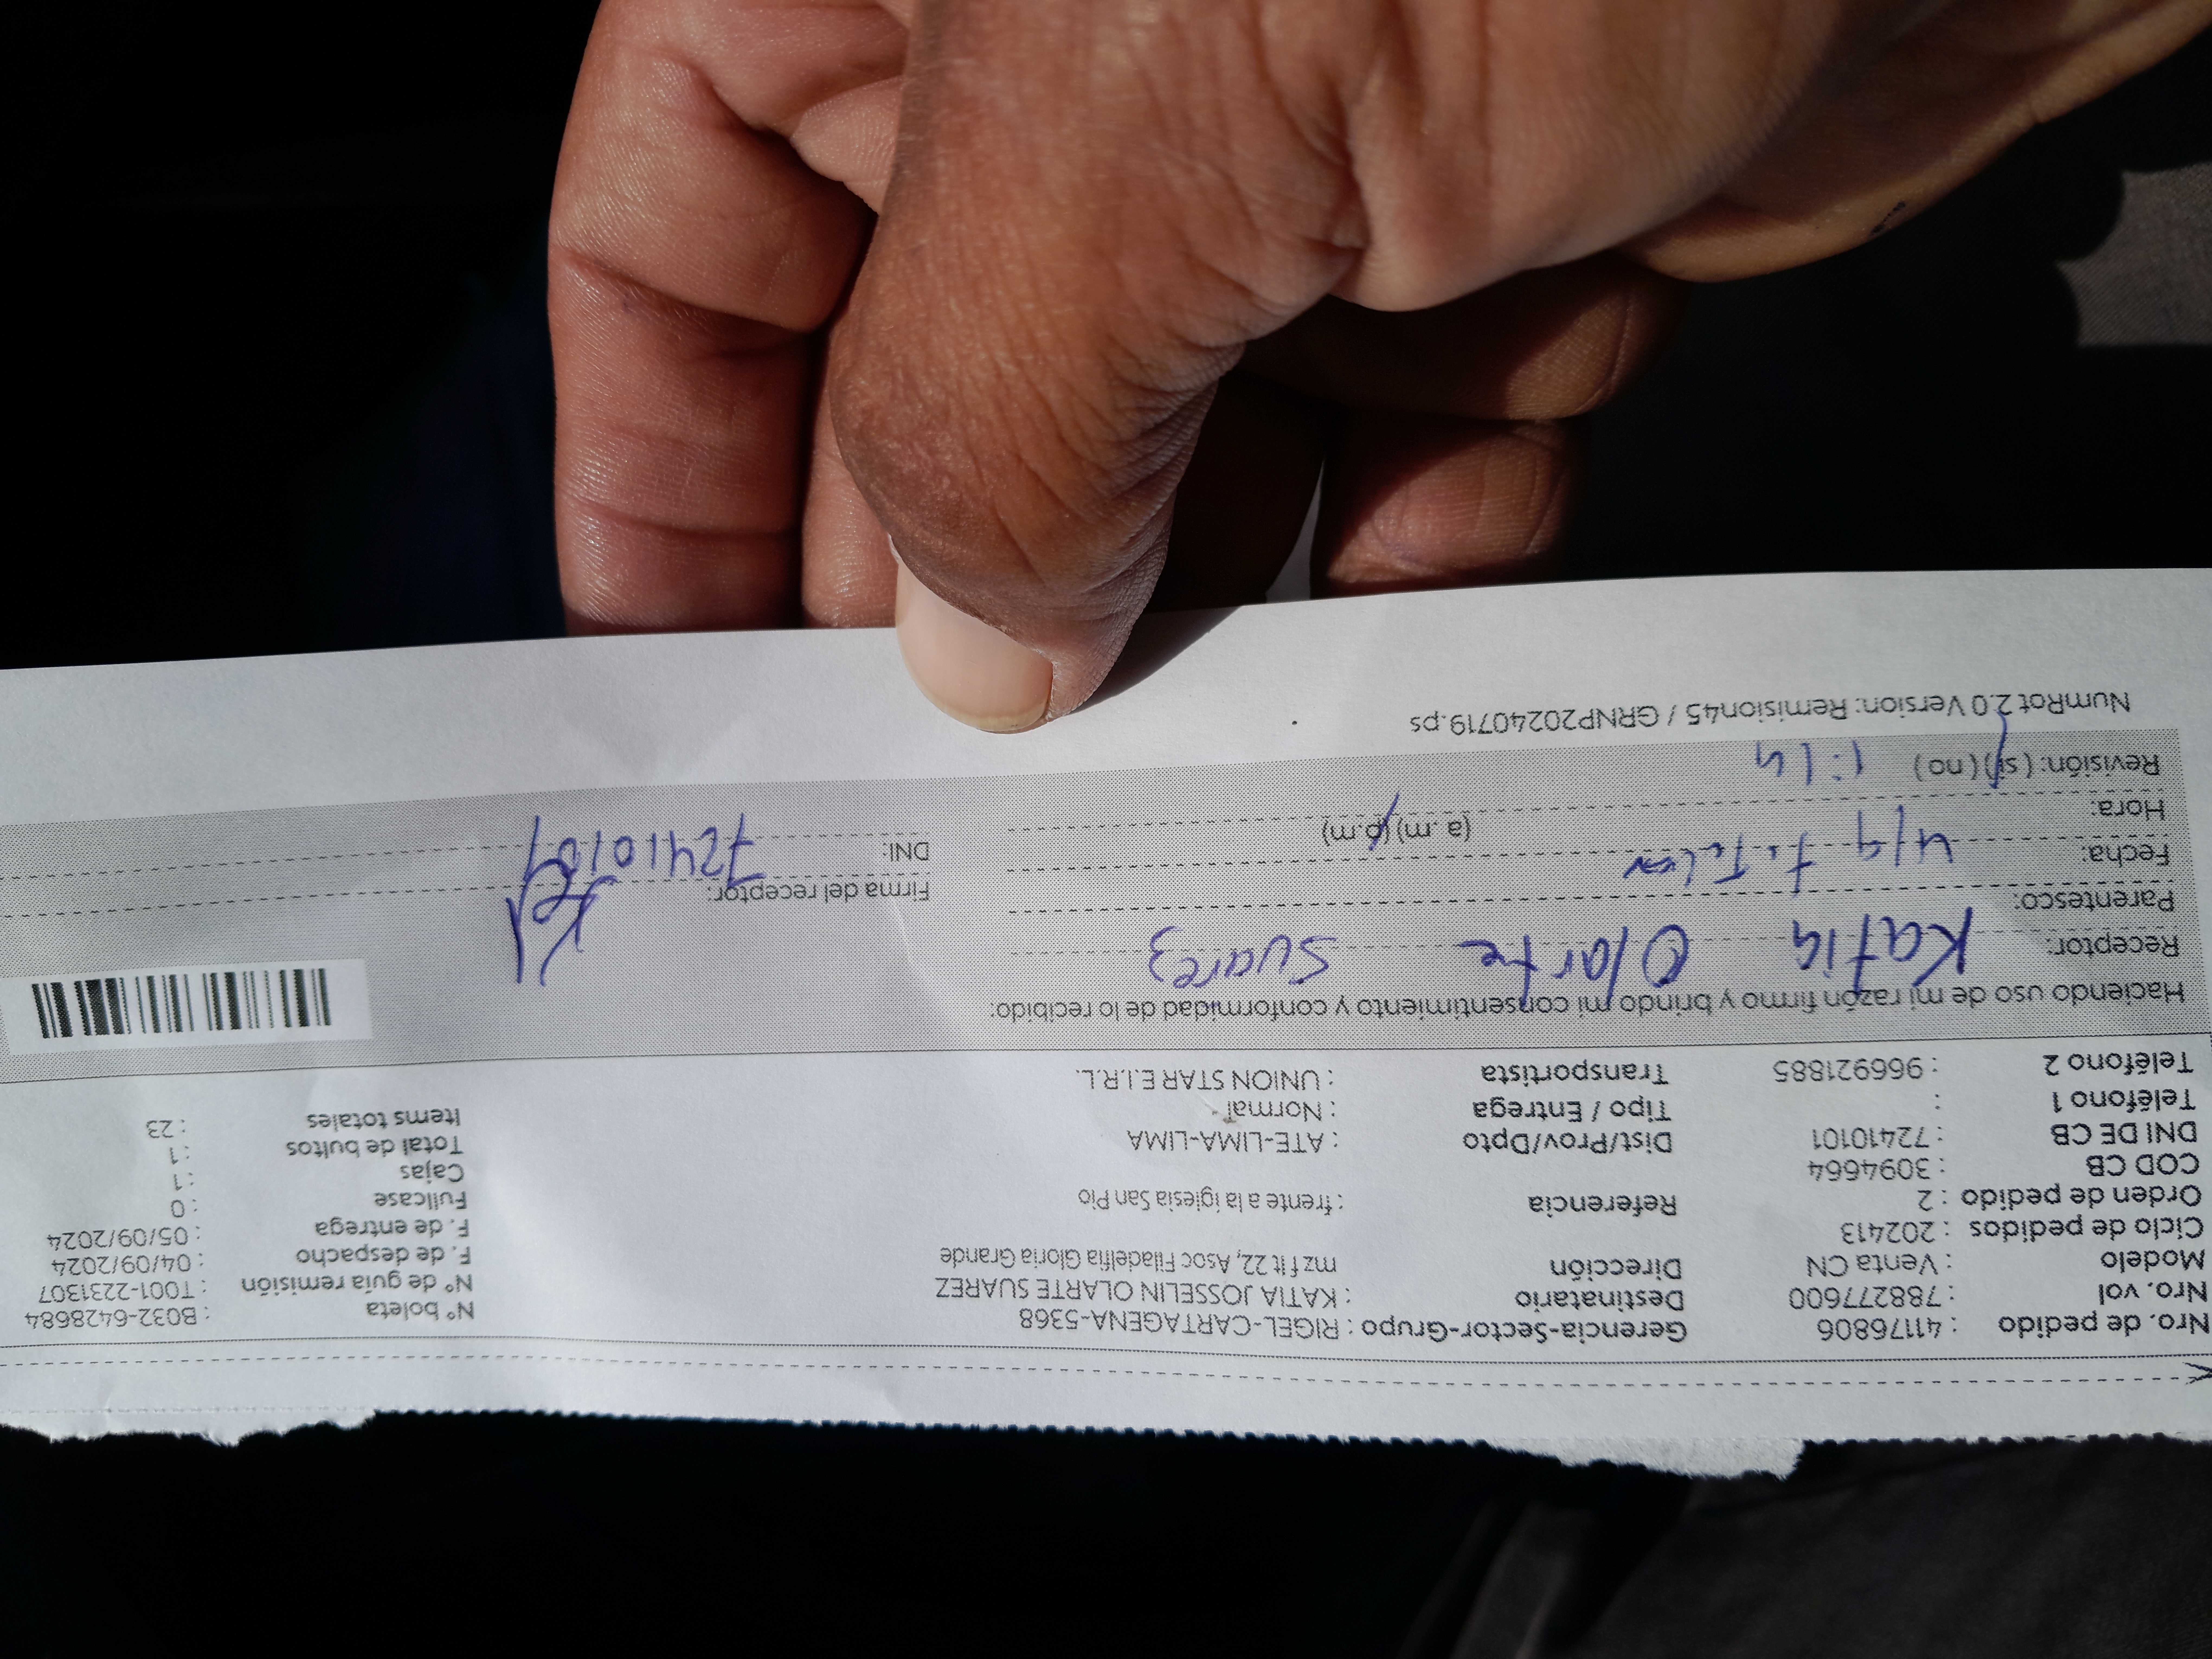 Nro. de pedido : 41176806 Gerencia-Sector-Grupo : RIGEL-CARTAGENA-5368 N° boleta : B032-6428684
Nro. vol : 788277600 Destinatario : KATIA JOSSELIN OLARTE SUAREZ N° de guía remisión : T001-2231307
Modelo : Venta CN Dirección mz f lt 22, Asoc Filadelfia Gloria Grande F. de despacho : 04/09/2024
Ciclo de pedidos : 202413 F. de entrega : 05/09/2024
Orden de pedido : 2 Referencia : frente a la iglesia San Pio Fullcase : 0
COD CB : 3094664 Cajas : 1
DNI DE CB : 72410101 Dist/Prov/Dpto : ATE-LIMA-LIMA Total de bultos : 1
Teléfono 1 : Tipo / Entrega : Normal Items totales : 23
Teléfono 2 : 966921885 Transportista : UNION STAR E.I.R.L.
Haciendo uso de mi razón firmo y brindo mi consentimiento y conformidad de lo recibido:
Receptor: Katia Olarte Suarez
Parentesco: Firma del receptor:
Fecha: 4/9 DNI: 72410101
Hora: (a. m) (p.m)
Revisión: (si) (no) 1:14
NumRot 2.0 Version: Remision45 / GRNP20240719.ps